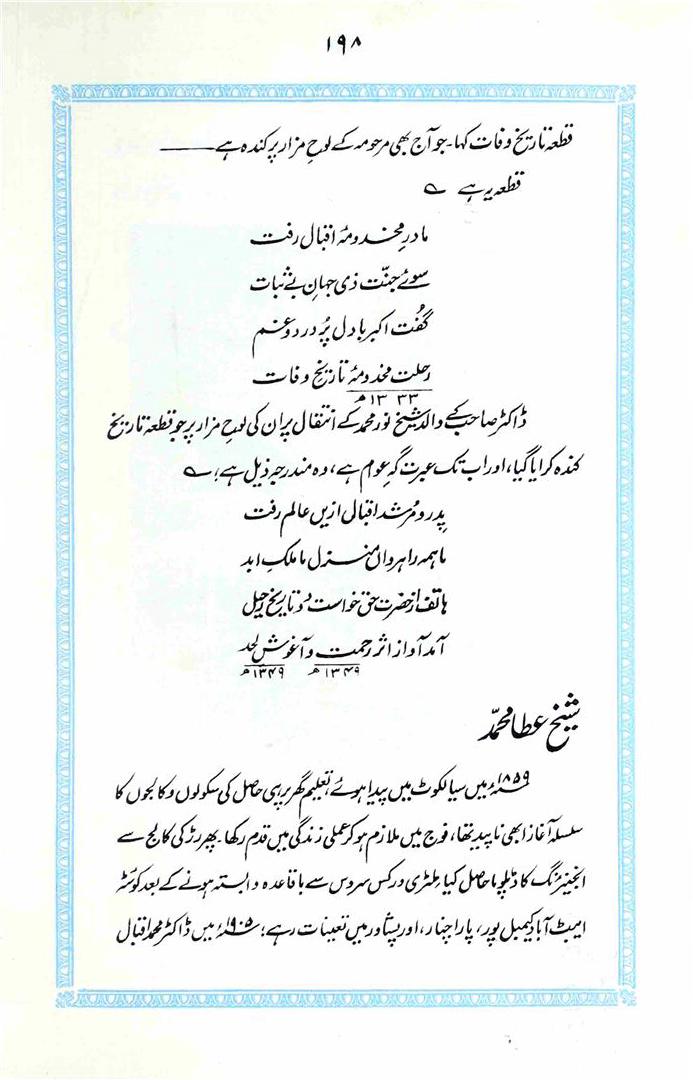 ۱۹۸
قطعہ تاریخ وفات کہا۔ جو آج بھی مرحومہ کے لوحِ مزار پر کندہ ہے ——
قطعہ یہ ہے ؎
مادرِ مخدومۂ اقبال رفت
سوئے جنّت ذی جہانِ بے ثبات
گفت اکبر با دلِ پُر درد و غم
رحلت مخدومۂ تاریخ وفات
۱۳۳۳ھ
ڈاکٹر صاحب کے والد شیخ نور محمد کے انتقال پر ان کی لوحِ مزار پر جو قطعہ تاریخ
کندہ کرایا گیا، اور اب تک عبرت گہِ عوام ہے، وہ مندرجہ ذیل ہے؛ ؎
پدر و مرشد اقبالی ازیں عالم رفت
ما ہمہ راہرواں منزل ما ملکِ ابد
ہاتف از حضرت حق خواست دو تاریخ رحیل
آمد آواز اثر رحمت و آغوش لحد
۱۳۴۹ھ ۱۳۴۹ھ
شیخ عطا محمدّ
۱۸۵۹ء میں سیالکوٹ میں پیدا ہوئے تعلیم گھر پر ہی حاصل کی سکولوں و کالجوں کا
سلسلہ آغاز ابھی ناپید تھا، فوج میں ملازم ہو کر عملی زندگی میں قدم رکھا۔ پھر رڑکی کالج سے
انجنیئرنگ کا ڈپلوما حاصل کیا۔ ملٹری ورکس سروس سے باقاعدہ وابستہ ہونے کے بعد کوئٹہ
ایبٹ آباد کیمبل پور، پاراچنار، اور پشاور میں تعینات رہے؛ ۱۹۰۵ء میں ڈاکٹر محمد اقبال